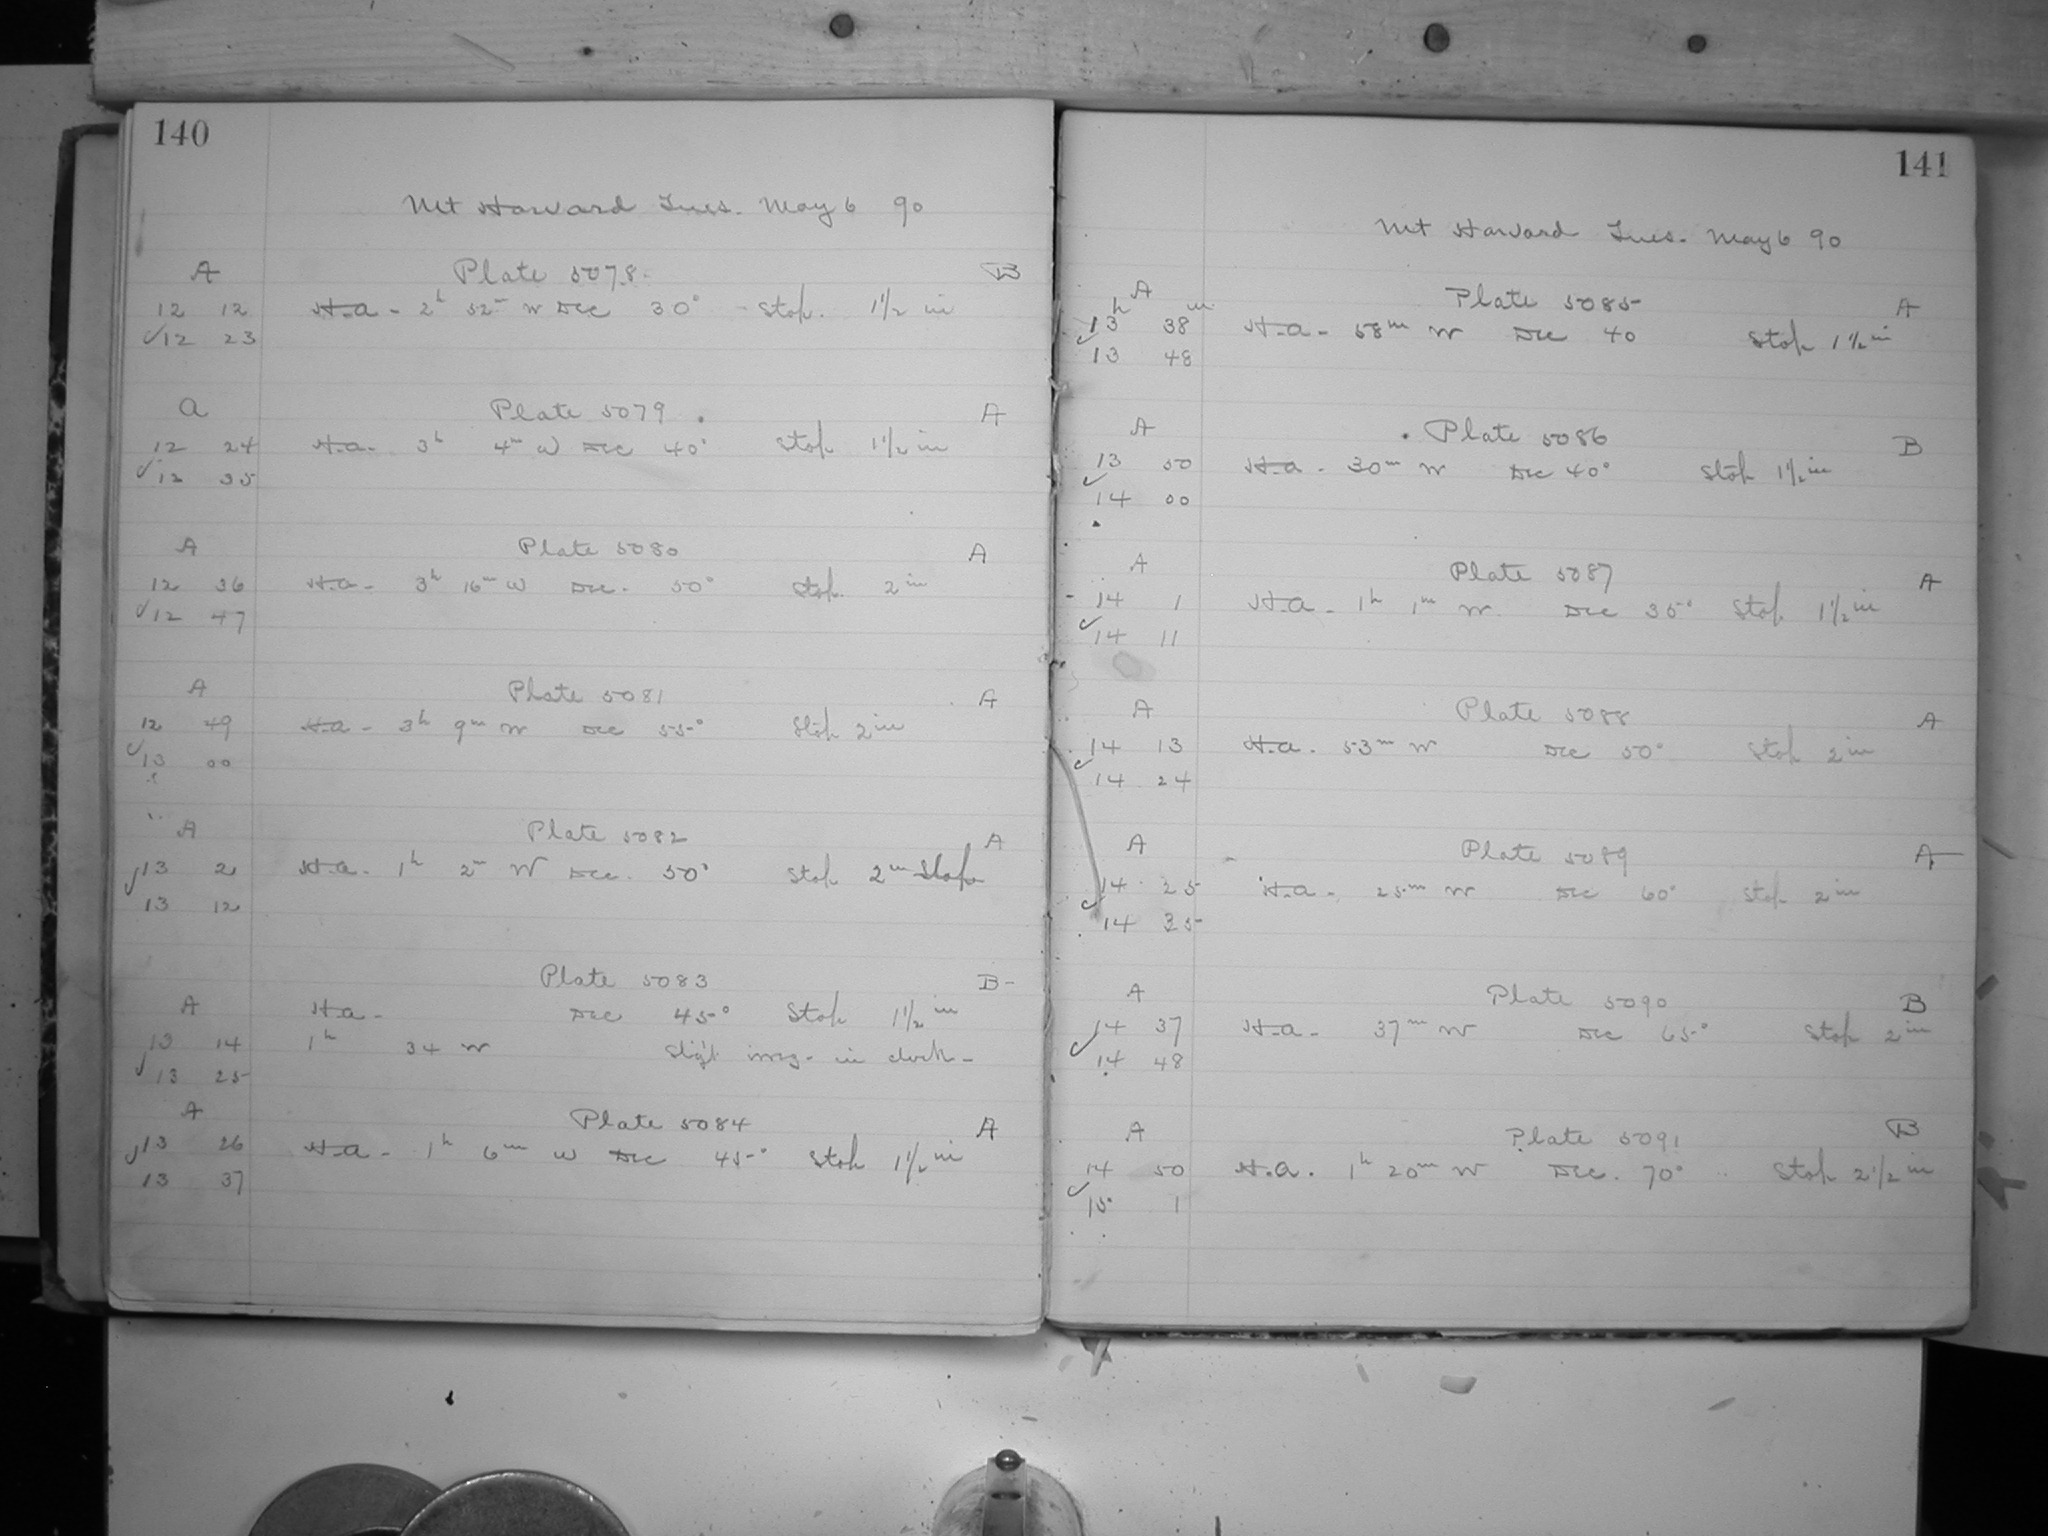 140
Mt Harvard Tues. May 6 90
A Plate 5078. B
12 12 H.a - 2h 52m W Dec 30° - Stop. 1 1/2 in
✓12 23
a Plate 5079. A
12 24 H.a. 3h 4m W Dec 40° Stop 1 1/2 in
✓12 35
A Plate 5080 A
12 36 H.a - 3h 16m W Dec. 50° Stop. 2 in
✓12 47
A Plate 5081 A
12 49 H.a - 3h 9m W Dec 55° Stop 2 in
✓13 00
A Plate 5082 A
✓13 2 H.a. 1h 2m W Dec. 50° Stop 2 in Stop
13 12
Plate 5083 B-
A H.a - Dec 45° Stop 1 1/2 in
13 14 1h 34 W Slight irreg. in clock -
✓13 25
A Plate 5084 A
✓13 26 H.a - 1h 6m W Dec 45° Stop 1 1/2 in
13 37
141
Mt Harvard Tues. May 6 90
A Plate 5085 A
h m
✓13 38 H.a - 58m W Dec 40 Stop 1 1/2 in
13 48
A Plate 5086 B
13 50 H.a - 30m W Dec 40° Stop 1 1/2 in
✓14 00
A Plate 5087 A
14 1 H.a - 1h 1m W. Dec 35° Stop 1 1/2 in
✓14 11
A Plate 5088 A
14 13 H.a. 53m W Dec 50° Stop 2 in
✓14 24
A Plate 5089 A
14 25 H.a - 25m W Dec 60° Stop 2 in
✓14 35
A Plate 5090 B
14 37 H.a - 37m W Dec 65° Stop 2 in
✓14 48
A Plate 5091 B
14 50 H.a. 1h 20m W Dec. 70° Stop 2 1/2 in
✓15 1